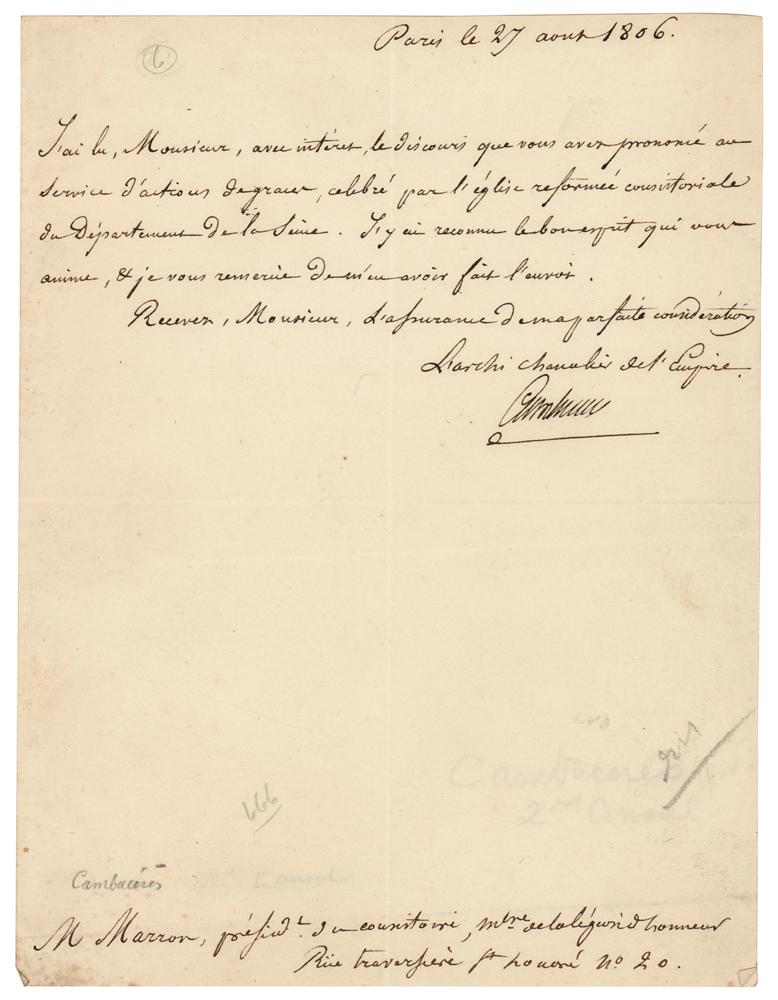 Paris le 27 aoust 1806.
6
J'ai lu, Monsieur, avec intérest, le discours que vous avez prononcé au
service d'actions de graces, celebré par l'église reformée consistoriale
du Département de la Seine. J'y ai reconnu le bon esprit qui vous
anime, & je vous remercie de m'en avoir fait l'envoi.
Recevez, Monsieur, L'assurance de ma parfaite considération
L'archi chancelier de l'Empire.
Cambaceres
Cambacérès
2me Consul
666
Cambacérès
M Marron, présidt. du consistoire, mbre de la légion d'honneur
Rüe traversiere St honoré no 20.